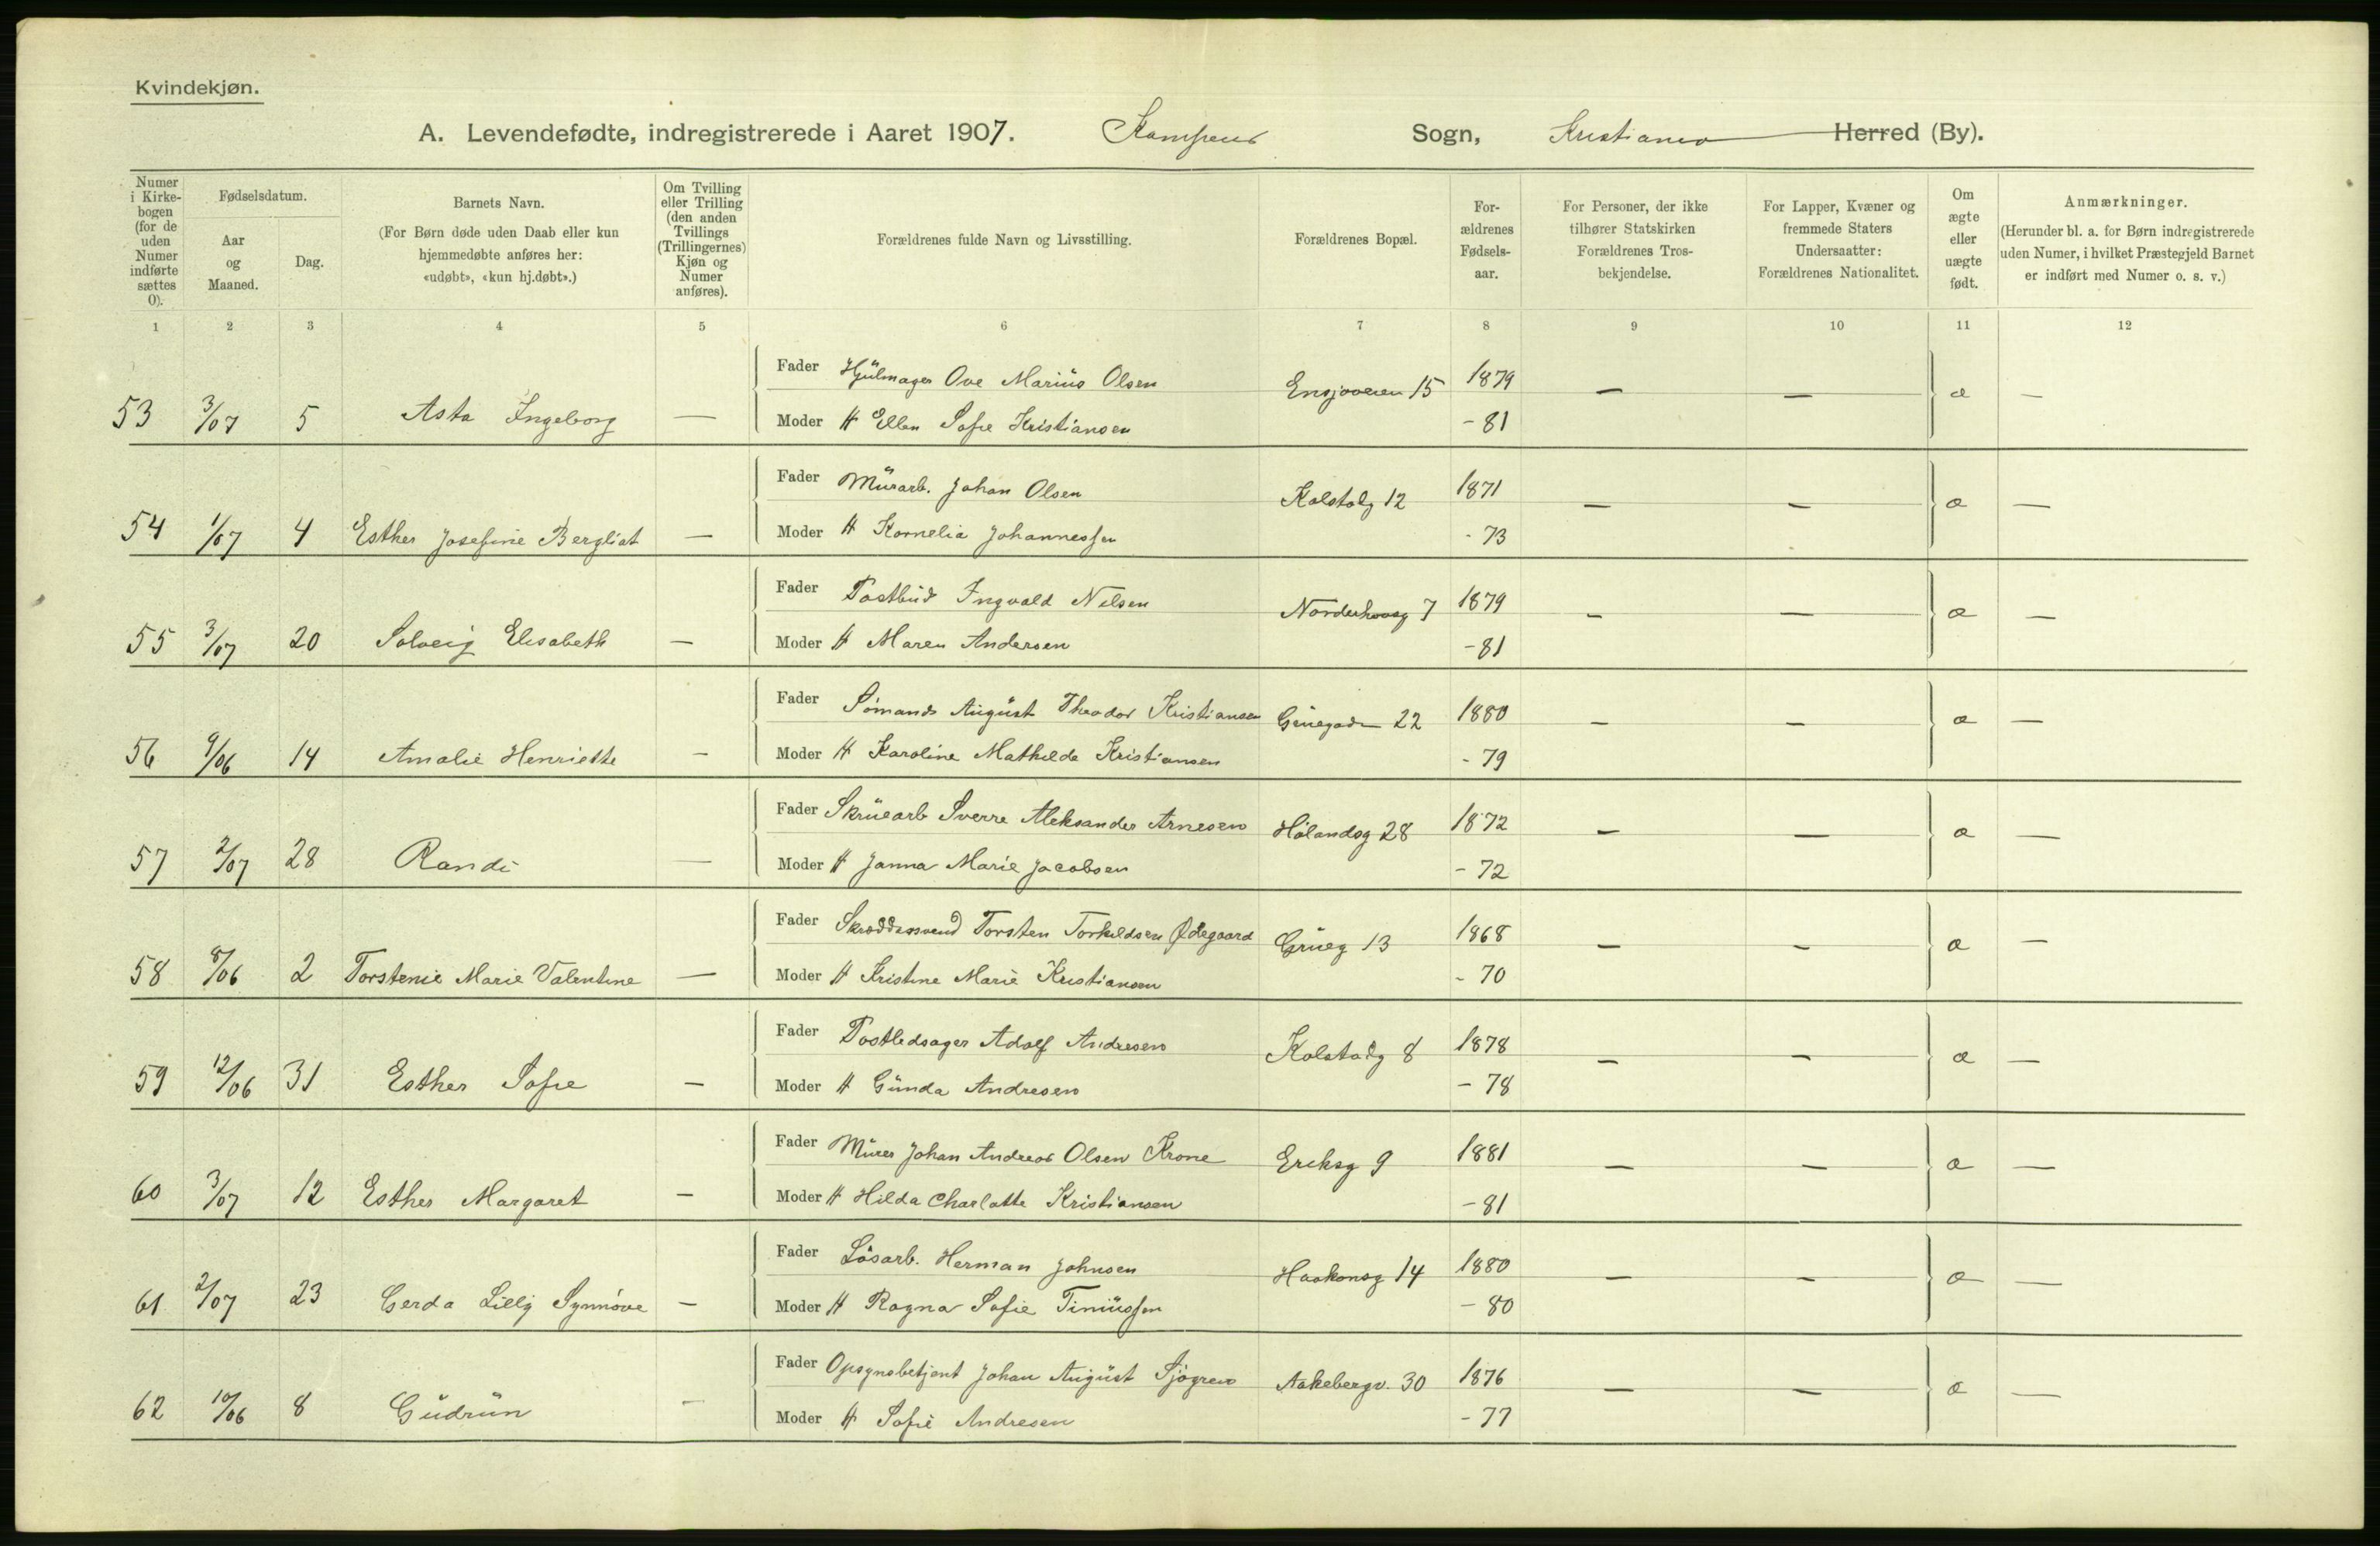 Kvindekjøn.
A. Levendefødte, indregistrerede i Aaret 1907. Kampens Sogn, Kristiania Herred (By).
Numer i Kirkebogen (for de uden Numer indførte sættes 0).
Fødselsdatum.
Aar og Maaned.
Dag.
Barnets Navn.
(For Børn døde uden Daab eller kun hjemmedøbte anføres her: «udøbt», «kun hj.døbt».)
Om Tvilling eller Trilling (den anden Tvillings (Trillingernes) Kjøn og Numer anføres).
Forældrenes fulde Navn og Livsstilling.
Forældrenes Bopæl.
Forældrenes Fødselsaar.
For Personer, der ikke tilhører Statskirken Forældrenes Trosbekjendelse.
For Lapper, Kvæner og fremmede Staters Undersaatter: Forældrenes Nationalitet.
Om ægte eller uægte født.
Anmærkninger.
(Herunder bl. a. for Børn indregistrerede uden Numer, i hvilket Præstegjeld Barnet er indført med Numer o. s. v.)
1 2 3 4 5 6 7 8 9 10 11 12
Fader Hjulmager Ove Marius Olsen Ensjøveien 15 1879 — — æ —
53 3/07 5 Asta Ingeborg — Moder H Ellen Sofie Kristiansen - 81
Fader Murarb. Johan Olsen Kolstadg 12 1871 — — æ —
54 1/07 4 Esther Josefine Bergliot — Moder H Kornelia Johannessen - 73
Fader Postbud Ingvald Nilsen Norderhovsg 7 1879 — — æ —
55 3/07 20 Solveig Elisabeth — Moder H Maren Andersen - 81
Fader Sømand August Theodor Kristiansen Gruegaden 22 1880 — — æ —
56 9/06 14 Amalie Henriette — Moder H Karoline Mathilde Kristiansen - 79
Fader Skruearb Sverre Aleksander Arnesen Hølandsg 28 1872 — — æ —
57 2/07 28 Randi — Moder H Janna Marie Jacobsen - 72
Fader Skræddersvend Torsten Torkildsen Ødegaard Grueg 13 1868 — — æ —
58 8/06 2 Torstenie Marie Valentine — Moder H Kristine Marie Kristiansen - 70
Fader Postledsager Adolf Andresen Kolstadg 8 1878 — — æ —
59 12/06 31 Esther Sofie — Moder H Gunda Andresen - 78
Fader Murer Johan Andreas Olsen Krone Eriksg 9 1881 — — æ —
60 3/07 12 Esther Margaret — Moder H Hilda Charlotte Kristiansen - 81
Fader Løsarb. Herman Johnsen Haakonsg 14 1880 — — æ —
61 2/07 23 Gerda Lilly Synnøve — Moder H Ragna Sofie - 80
Fader Opsynsbetjent Johan August Sjøgren Aakebergv. 30 1876 — — æ —
62 10/06 8 Gudrun — Moder H Sofie Andresen - 77